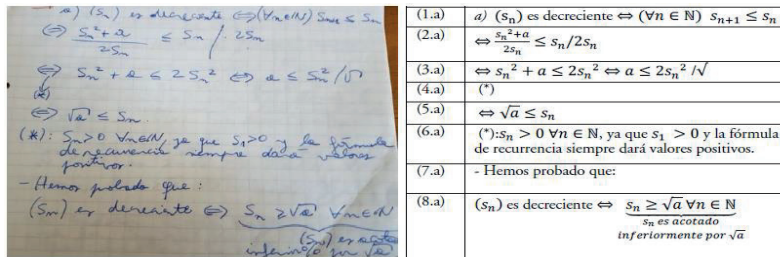 a) (Sn) es decreciente ⇔ (∀n∈N) Sn+1 ≤ Sn
⇔ (Sn² + a)/(2Sn) ≤ Sn / 2Sn
⇔ Sn² + a ≤ 2Sn² ⇔ a ≤ Sn² /√
(*)
⇔ √a ≤ Sn.
(*): Sn>0 ∀n∈N, ya que S1>0 y la fórmula
de recurrencia siempre dará valores
positivos.
- Hemos probado que:
(Sn) es decreciente ⇔ Sn ≥ √a ∀n∈N
(Sn) es acotada
inferior% por √a
(1.a) a) (sₙ) es decreciente ⇔ (∀n ∈ ℕ) sₙ₊₁ ≤ sₙ
(2.a) ⇔ (sₙ²+a)/(2sₙ) ≤ sₙ/2sₙ
(3.a) ⇔ sₙ² + a ≤ 2sₙ² ⇔ a ≤ 2sₙ² /√
(4.a) (*)
(5.a) ⇔ √a ≤ sₙ
(6.a) (*):sₙ > 0 ∀n ∈ ℕ, ya que s₁ > 0 y la fórmula
de recurrencia siempre dará valores positivos.
(7.a) - Hemos probado que:
(8.a) (sₙ) es decreciente ⇔ sₙ ≥ √a ∀n ∈ ℕ
sₙ es acotado
inferiormente por √a